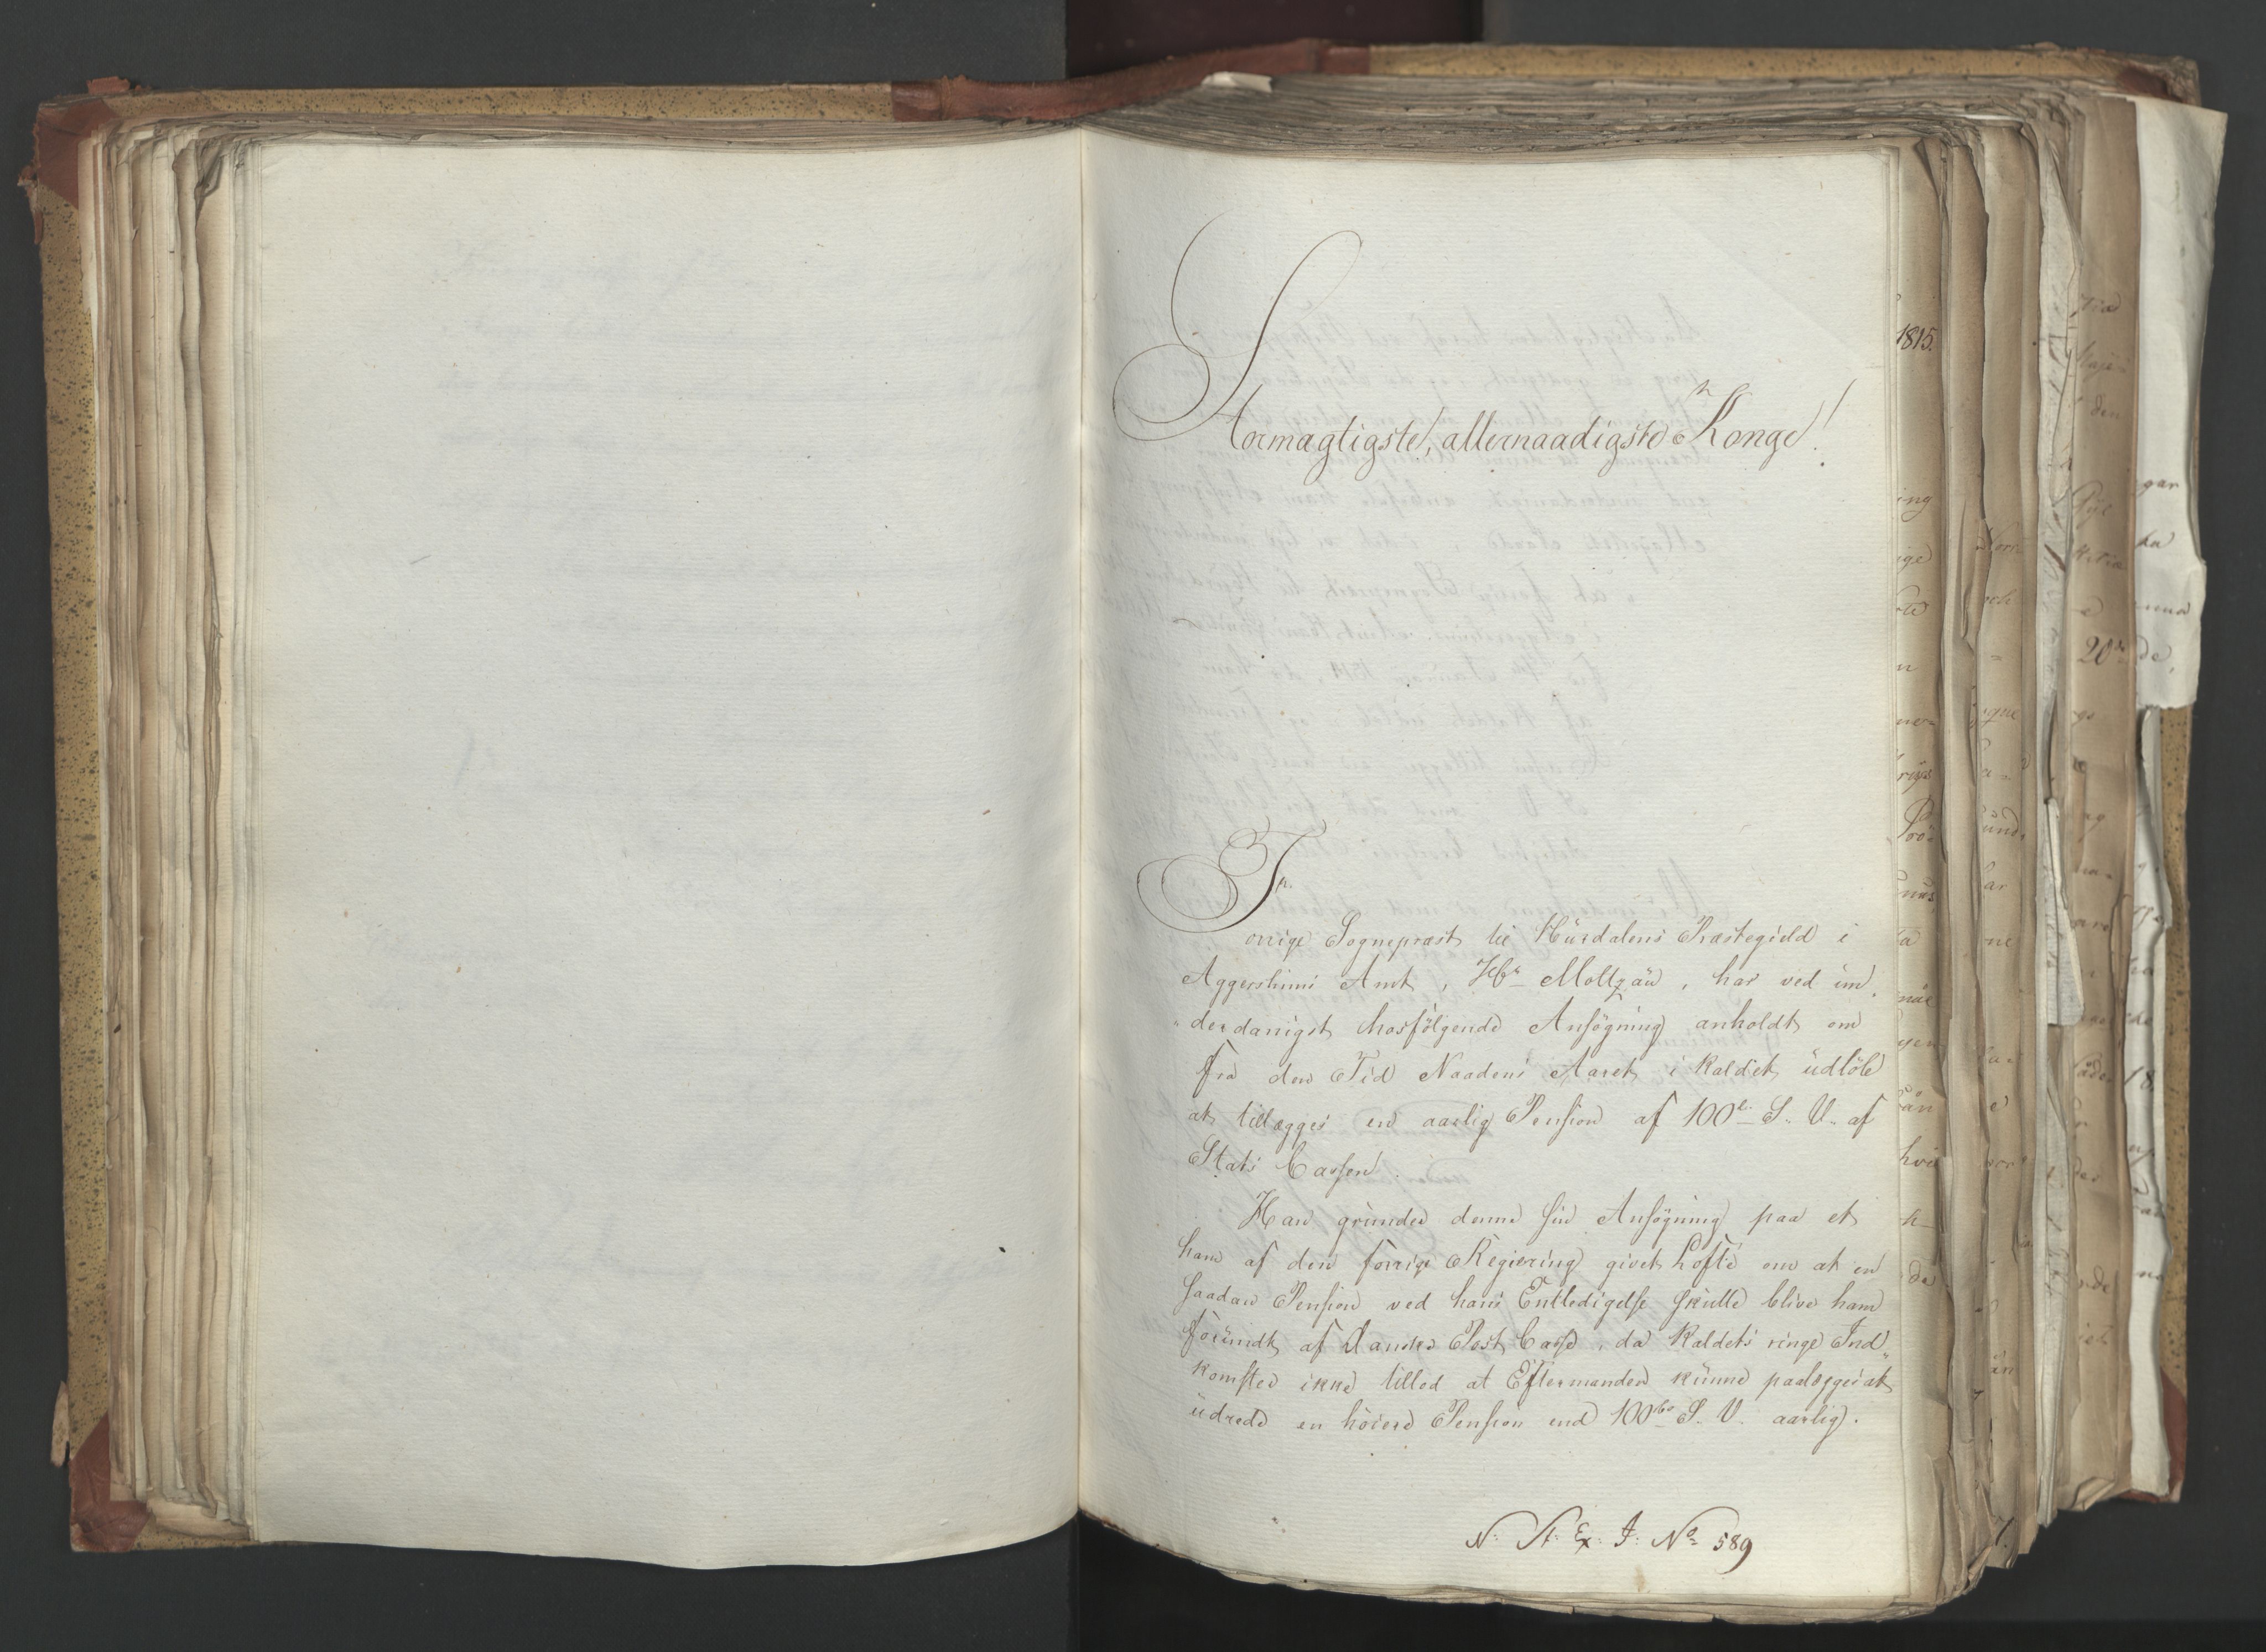 Stormagtigste, allernaadigste Konge!
Forrige Sogneprest til Hürdalens Præstegield i
Aggershuus Amt, Hr Moltzau, har ved ün„
„derdanigst hosfölgende Ansögning anholdt om
fra den Tid Naadens Aaret i Kaldet üdlöb
at tillægges en aarlig Pension af 100 S. V. af
Stats Cassen.
Han grunder denne sin Ansögning paa et
ham af den forrige Regiering givet Löfte om at en
saadan Pension ved hans Entledigelse skulle blive ham
forundt af Danske Post Casse, da Kaldets ringe Ind„
komster ikke tillod at Eftermanden künne paalægges at
üdrede en höiere Pension end 100 S. V. aarlig.
N: St: Ex: J: No 589
1815.
ing
20de